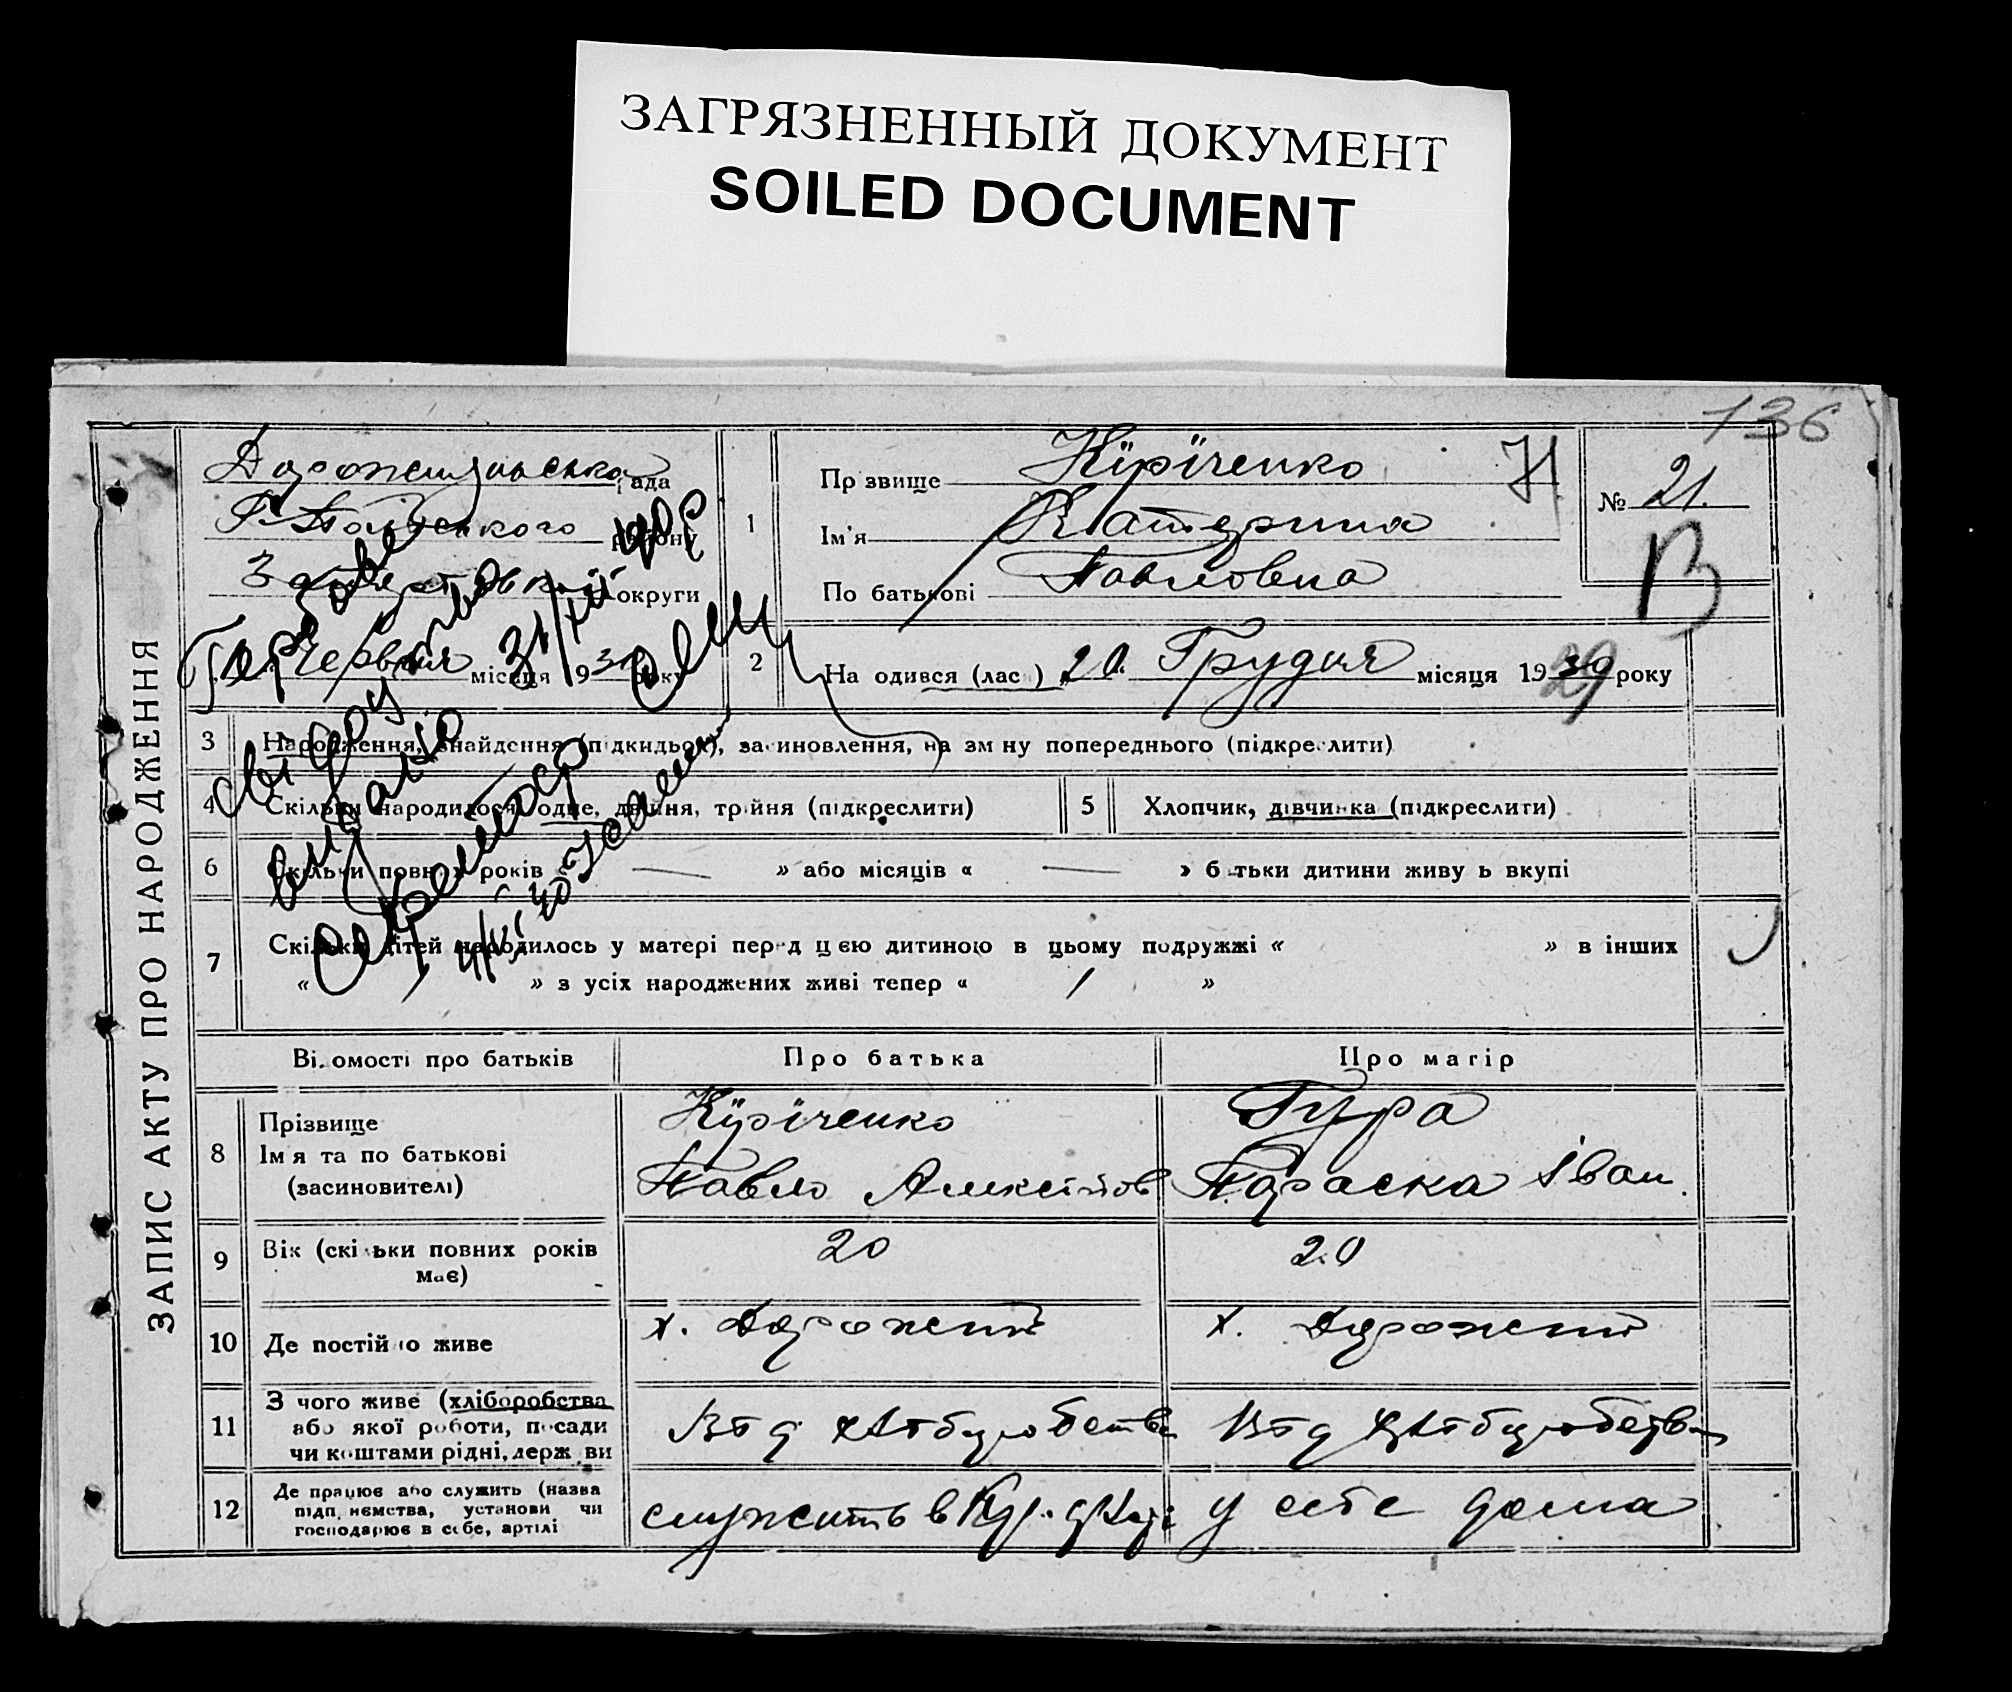 ЗАГРЯЗНЕННЫЙ ДОКУМЕНТ
SOILED DOCUMENT
136
ЗАПИС АКТУ ПРО НАРОДЖЕННЯ
рада
району
округи
Червня місяця 1930 року
1
Прізвище Кіріченко
Ім'я Катерина
По батькові Павловна
№ 21.
Н
В
2 На одився (лас ) „20“ Грудня місяця 1929 року
3 Народження, знайдення (підкидьок), засиновлення, на зм ну попереднього (підкреслити)
4 Скільки народилося одне, двійня, трійня (підкреслити)
5 Хлопчик, дівчинка (підкреслити)
6 Скільки повних років — » або місяців « — » б тьки дитини живу ь вкупі
7 Скільки дітей народилось у матері перед цією дитиною в цьому подружжі « » в інших
« » з усіх народжених живі тепер « 1 »
Ві омості про батьків Про батька Про матір
8 Прізвище
Імя та по батькові
(засиновителі)
Кіріченко
Павло
Гура
Параска Іван.
9 Вік (скі ьки повних років
має)
20
20
10 Де постійно живе
х. Дорожній
х. Дорожній
11 З чого живе (хліборобства
або якої роботи, посади
чи коштами рідні, держ ви
Від хліборобства
Від хліборобства
12 Де працює або служить (назва
підп иємства, установи чи
господарює в себе, артілі
служить в
у себе дома
Секретар
31/XII-40 р